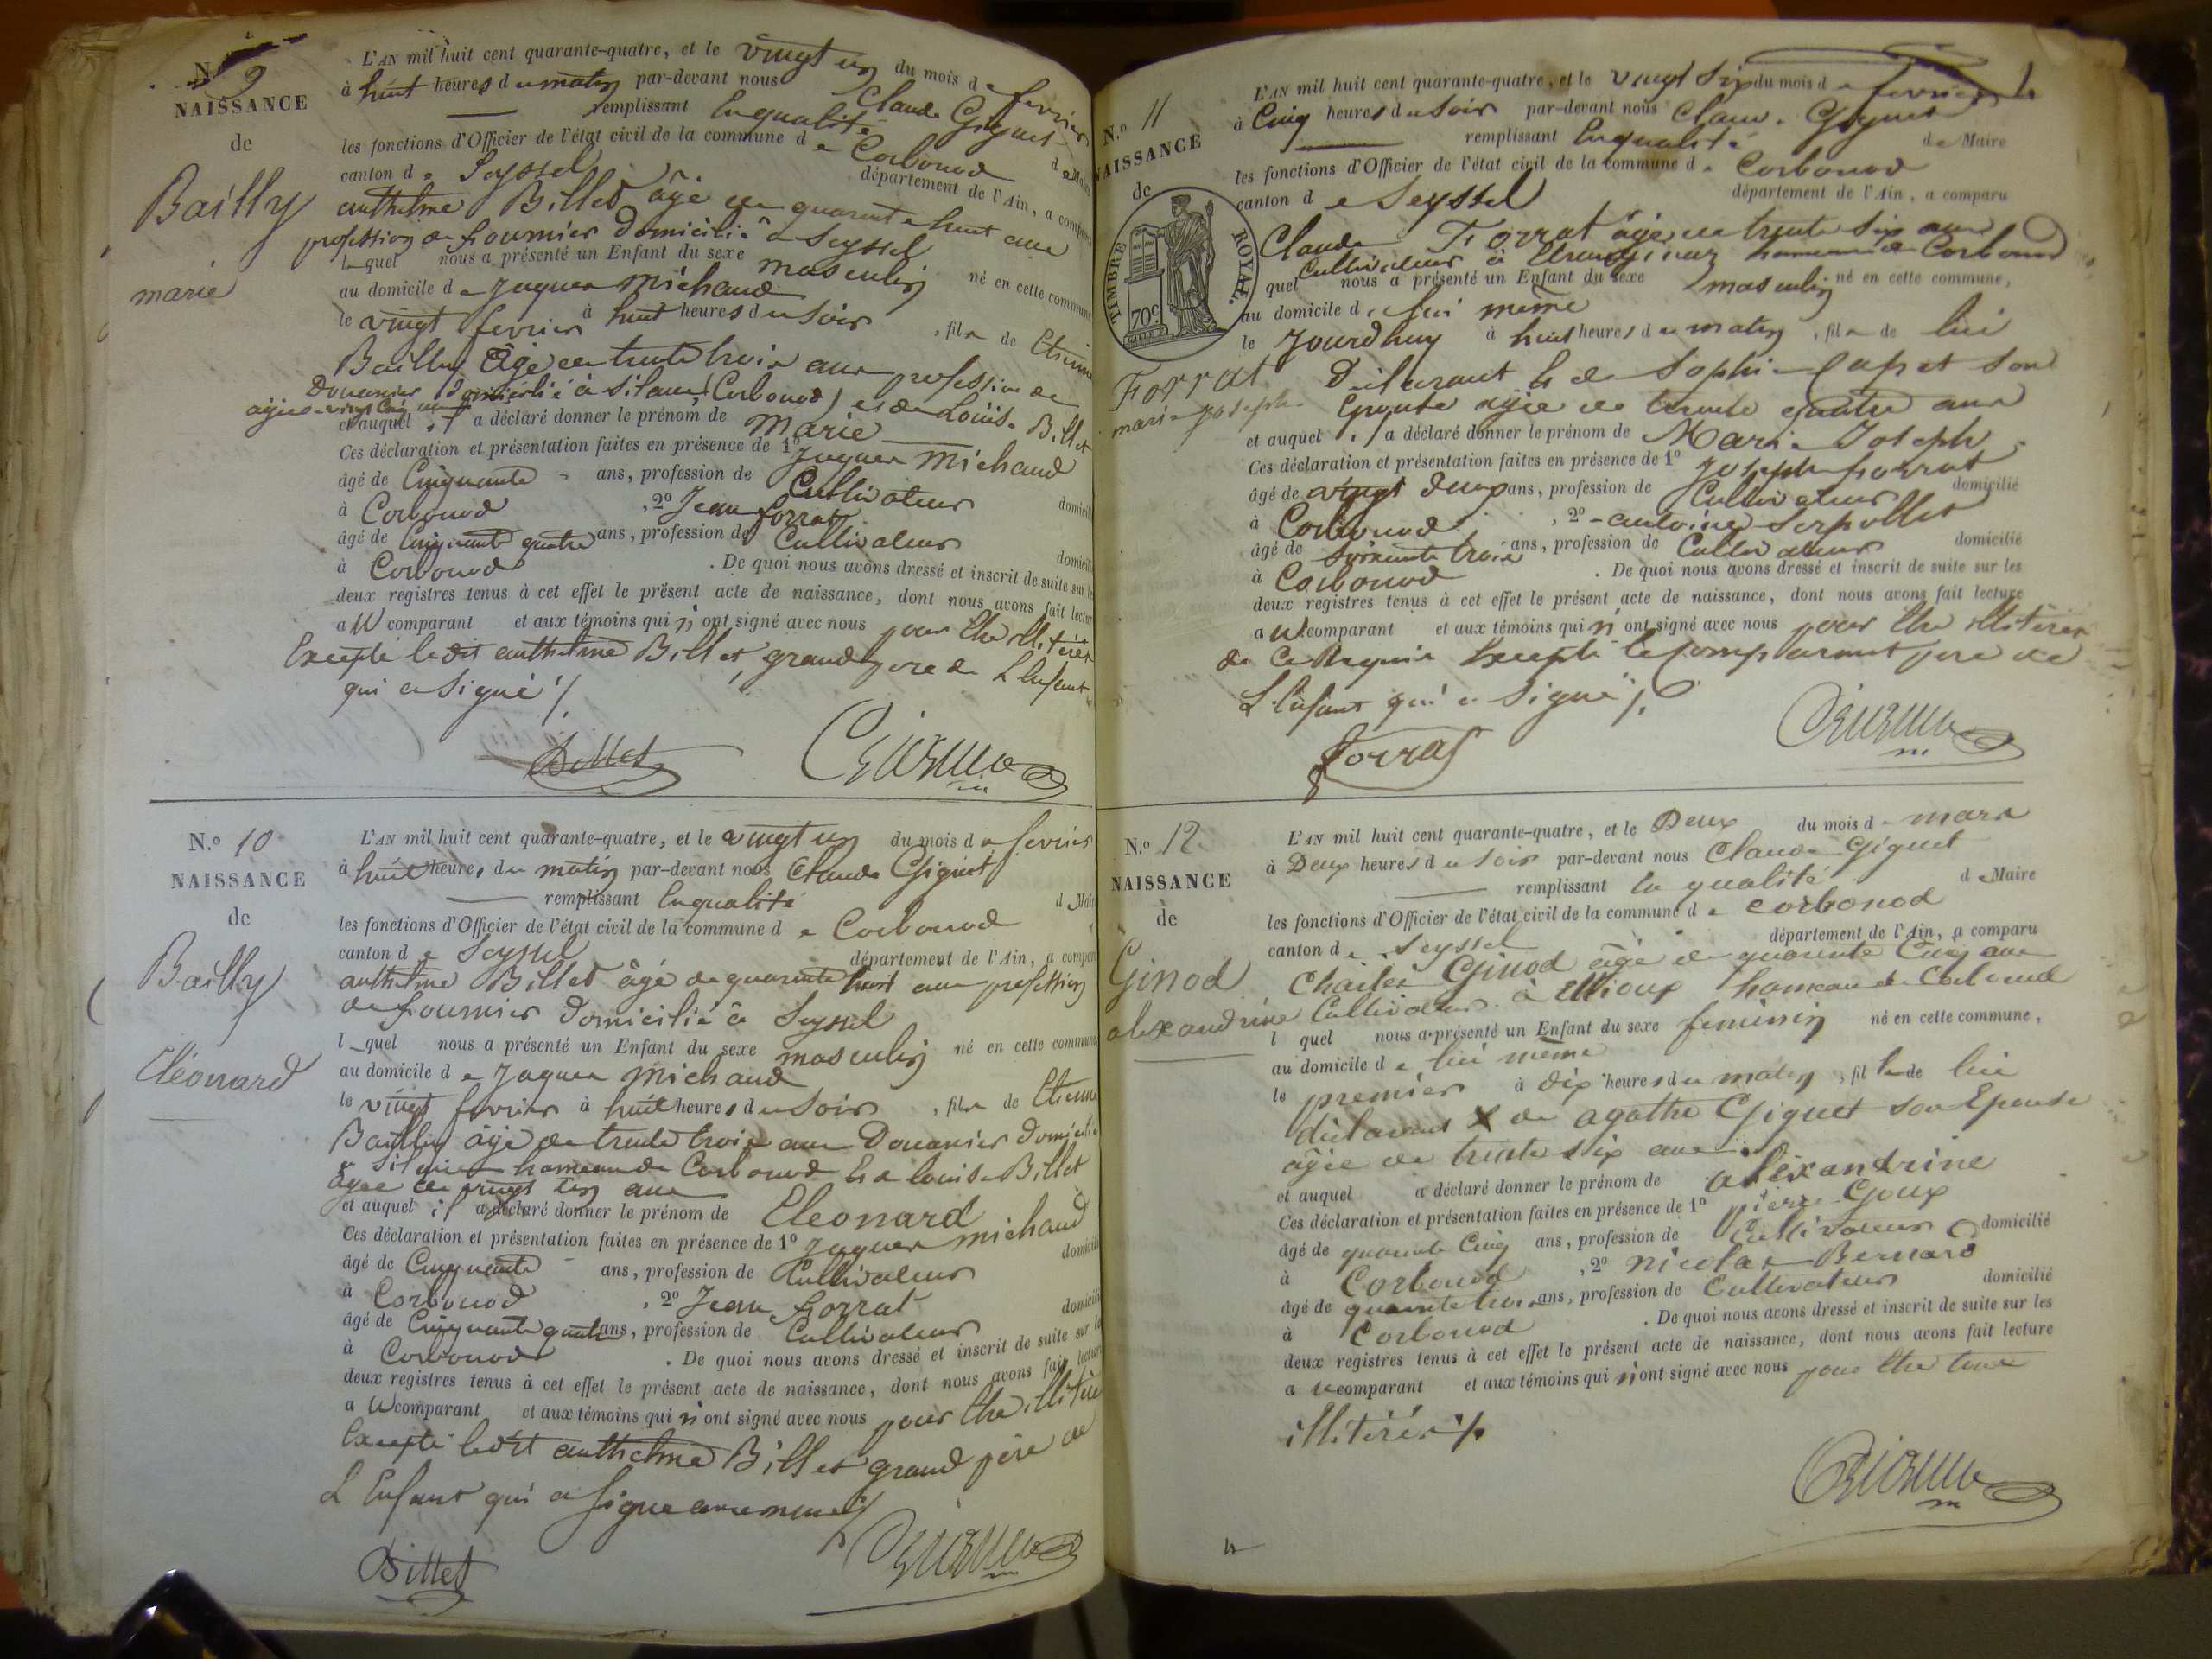 N.º 9
NAISSANCE
de
Bailly
marie
L'AN mil huit cent quarante-quatre, et le vingt un du mois de fevrier
à huit heures du matin par-devant nous Claude Giguet
remplissant en qualité de Maire
les fonctions d'Officier de l'état civil de la commune de Corbonod
canton de Seyssel département de l'Ain, a comparu
anthelme Billet âgé de quarante huit ans
profession de fournier domicilié à Seyssel
lequel nous a présenté un Enfant du sexe masculin né en cette commune
au domicile de Jaques Michaud
le vingt fevrier à huit heures du soir, fils de Etienne
Bailly âgé de trente trois ans profession de
Douanier domicilié à Silans (Corbonod) et de Louise Billet
agée de vingt cinq ans
et auquel il a déclaré donner le prénom de Marie
Ces déclaration et présentation faites en présence de 1º Jaques Michaud
âgé de Cinquante ans, profession de Cultivateur domicilié
à Corbonod, 2º Jean forrat
âgé de Cinquante quatre ans, profession de Cultivateur domicilié
à Corbonod. De quoi nous avons dressé et inscrit de suite sur les
deux registres tenus à cet effet le présent acte de naissance, dont nous avons fait lecture
au comparant et aux témoins qui n'ont signé avec nous pour être illitérés
Excepté ledit anthelme Billet, grand pere de L'Enfant
qui a signé ./.
Billet
N.º 10
NAISSANCE
de
Bailly
Eléonard
L'AN mil huit cent quarante-quatre, et le vingt un du mois de fevrier
à huit heures du matin par-devant nous Claude Giguet
remplissant en qualité de Maire
les fonctions d'Officier de l'état civil de la commune de Corbonod
canton de Seyssel département de l'Ain, a comparu
anthelme Billet âgé de quarante huit ans profession
de fournier Domicilié à Seyssel
lequel nous a présenté un Enfant du sexe masculin né en cette commune
au domicile de Jaques Michaud
le vingt fevrier à huit heures du soir, fils de Etienne
Bailly âgé de trente trois ans Douanier domicilié
à Silans hameau de Corbonod et de louise Billet
âgée de vingt cinq ans
et auquel il a déclaré donner le prénom de Eleonard
Ces déclaration et présentation faites en présence de 1º Jaques michaud
âgé de Cinquante ans, profession de Cultivateur domicilié
à Corbonod, 2º Jean forrat
âgé de Cinquante quatre ans, profession de Cultivateur domicilié
à Corbonod. De quoi nous avons dressé et inscrit de suite sur les
deux registres tenus à cet effet le présent acte de naissance, dont nous avons fait lecture
au comparant et aux témoins qui n'ont signé avec nous pour être illitérés
Excepté ledit anthelme Billet grand père de
L'Enfant qui a signé avec nous ./.
Billet
N.º 11
NAISSANCE
de
TIMBRE ROYAL.
70c.
Forrat
marie joseph
L'AN mil huit cent quarante-quatre, et le vingt six du mois de fevrier
à Cinq heures du soir par-devant nous Claude Giguet
remplissant en qualité de Maire
les fonctions d'Officier de l'état civil de la commune de Corbonod
canton de Seyssel département de l'Ain, a comparu
Claude Forrat âgé de trente six ans
Cultivateur à hameau de Corbonod
quel nous a présenté un Enfant du sexe masculin né en cette commune,
au domicile de lui même
le Jourdhuy à huit heures du matin, fils de lui
Déclarant et de Sophie son
Epouse agée de trente quatre ans
et auquel il a déclaré donner le prénom de Marie Joseph
Ces déclaration et présentation faites en présence de 1º Joseph forrat
âgé de vingt deux ans, profession de Cultivateur domicilié
à Corbonod, 2º antoine Serpollet
âgé de soixante trois ans, profession de Cultivateur domicilié
à Corbonod. De quoi nous avons dressé et inscrit de suite sur les
deux registres tenus à cet effet le présent acte de naissance, dont nous avons fait lecture
au comparant et aux témoins qui n'ont signé avec nous pour être illitérés
de ce Requis Excepté le Comparant pere de
L'Enfant qui a signé ./.
Forrat
N.º 12
NAISSANCE
de
Ginod
alexandrine
L'AN mil huit cent quarante-quatre, et le Deux du mois de mars
à Deux heures du soir par-devant nous Claude Giguet
remplissant en qualité de Maire
les fonctions d'Officier de l'état civil de la commune de Corbonod
canton de Seyssel département de l'Ain, a comparu
Charles Ginod âgé de quarante Cinq ans
Cultivateur à Etrioux hameau de Corbonod
l quel nous a présenté un Enfant du sexe feminin né en cette commune,
au domicile de lui même
le premier à dix heures du matin, fille de lui
déclarant et de agathe Giguet son Epouse
âgée de trente six ans
et auquel a déclaré donner le prénom de alexandrine
Ces déclaration et présentation faites en présence de 1º Pierre Goux
âgé de quarante Cinq ans, profession de Cultivateur domicilié
à Corbonod, 2º nicolas Bernard
âgé de quarante trois ans, profession de Cultivateur domicilié
à Corbonod. De quoi nous avons dressé et inscrit de suite sur les
deux registres tenus à cet effet le présent acte de naissance, dont nous avons fait lecture
au comparant et aux témoins qui n'ont signé avec nous pour être tous
illitérés ./.